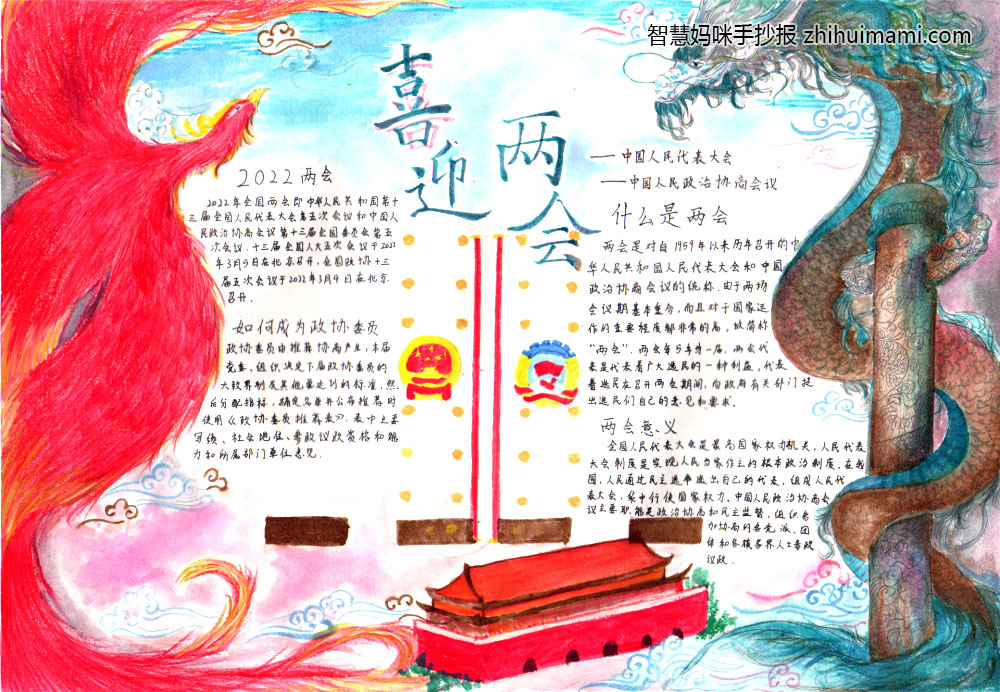 智慧妈咪手抄报 zhihuimami.com
喜迎
两会
2022两会
2022年全国两会即中华人民共和国第十
三届全国人民代表大会第五次会议和中国人
民政治协商会议第十三届全国委员会第五
次会议.十三届全国人大五次会议于2022
年3月5日在北京召开,全国政协十三
届五次会议于2022年3月4日在北京
召开.
如何成为政协委员
政协委员由推荐协商产生,本届
党委、组织决定下届政协委员的
大致界别及其他要达到的标准,然
后分配指标,确定名单并公布推荐时
使用《政协委员推荐表》,表中主要
写绩、社会地位、参政议政资格和能
力和所属部门单位意见.
——中国人民代表大会
——中国人民政治协商会议
什么是两会
两会是对自1959年以来历年召开的中
华人民共和国人民代表大会和中国
政治协商会议的统称.由于两场
会议期基本重合,而且对于国家运
作的重要程度都非常的高,故简称
“两会”.两会每5年为一届,两会代
表是代表着广大选民的一种利益,代表
着选民在召开两会期间,向政府有关部门提
出选民们自己的意见和要求.
两会意义
全国人民代表大会是最高国家权力机关,人民代表
大会制度是实现人民当家作主的根本政治制度.在我
国,人民通过民主选举选出自己的代表,组成人民代
表大会,集中行使国家权力.中国人民政治协商会
议主要职能是政治协商和民主监督,组织参
加协商的各党派、团
体和各族各界人士参政
议政.